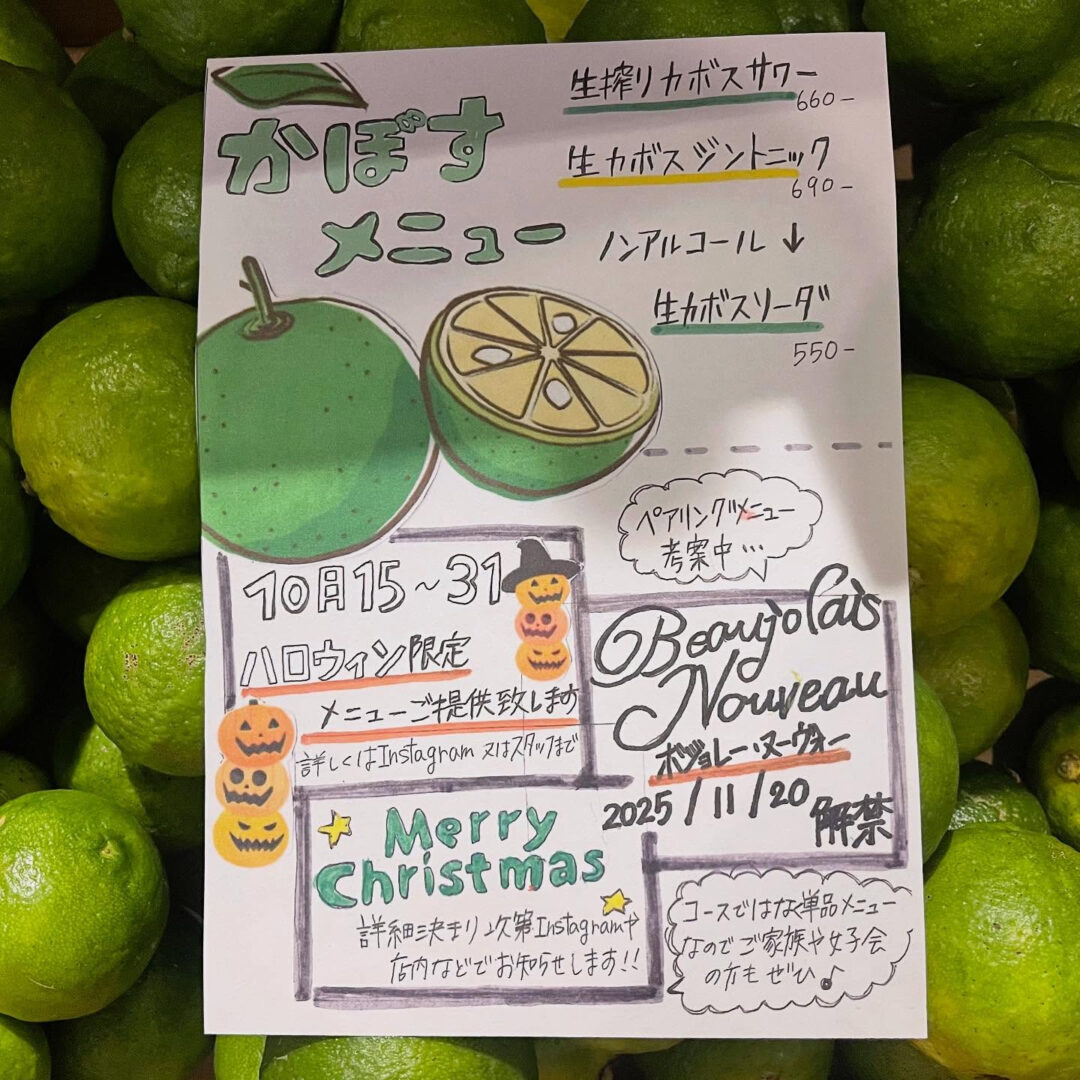 かぼす
メニュー
生搾りカボスサワー
660-
生カボスジントニック
690-
ノンアルコール↓
生カボスソーダ
550-
ペアリングメニュー
考案中…
10月15~31
ハロウィン限定
メニューご提供致します
詳しくはInstagram又はスタッフまで
Beaujolais
Nouveau
ボジョレー・ヌーヴォー
2025/11/20
解禁
Merry
Christmas
詳細決まり次第Instagramや
店内などでお知らせします!!
コースではなく単品メニュー
なのでご家族や女子会
の方もぜひ♪